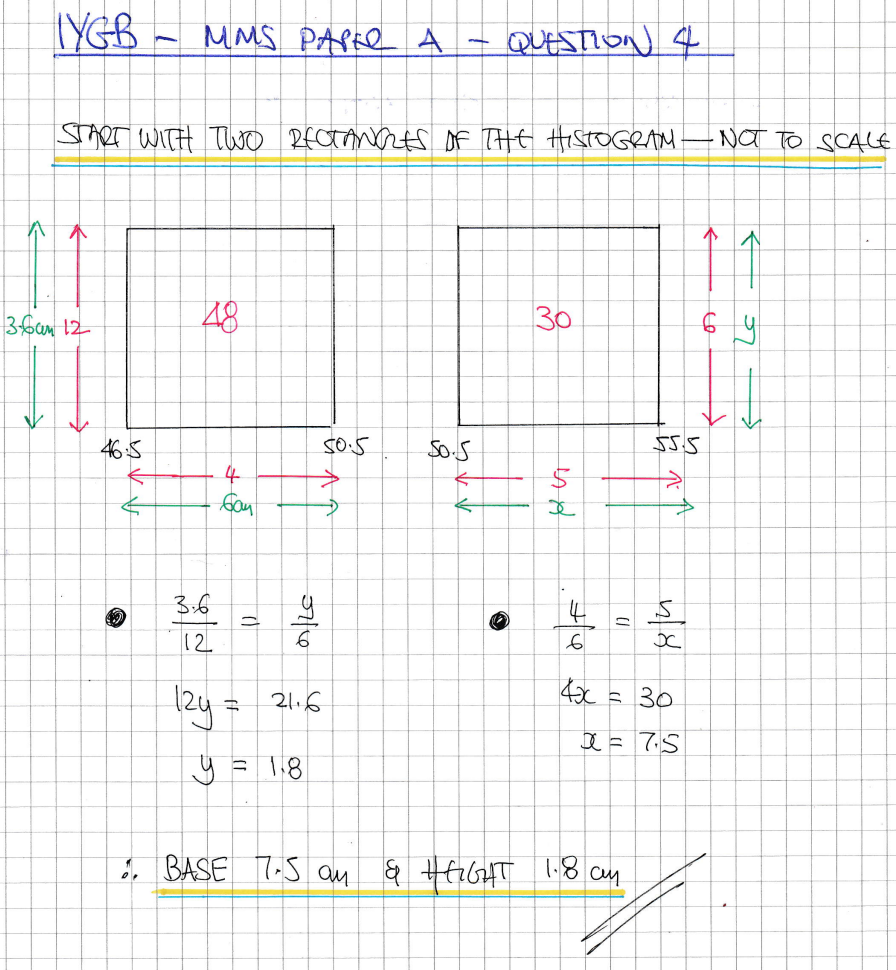 IYGB - MMS PAPER A - QUESTION 4
START WITH TWO RECTANGLES OF THE HISTOGRAM — NOT TO SCALE
3.6cm 12 48 30 6 y
46.5 50.5 50.5 55.5
4 5
6cm x
3.6/12 = y/6 4/6 = 5/x
12y = 21.6 4x = 30
y = 1.8 x = 7.5
∴ BASE 7.5 cm & HEIGHT 1.8 cm